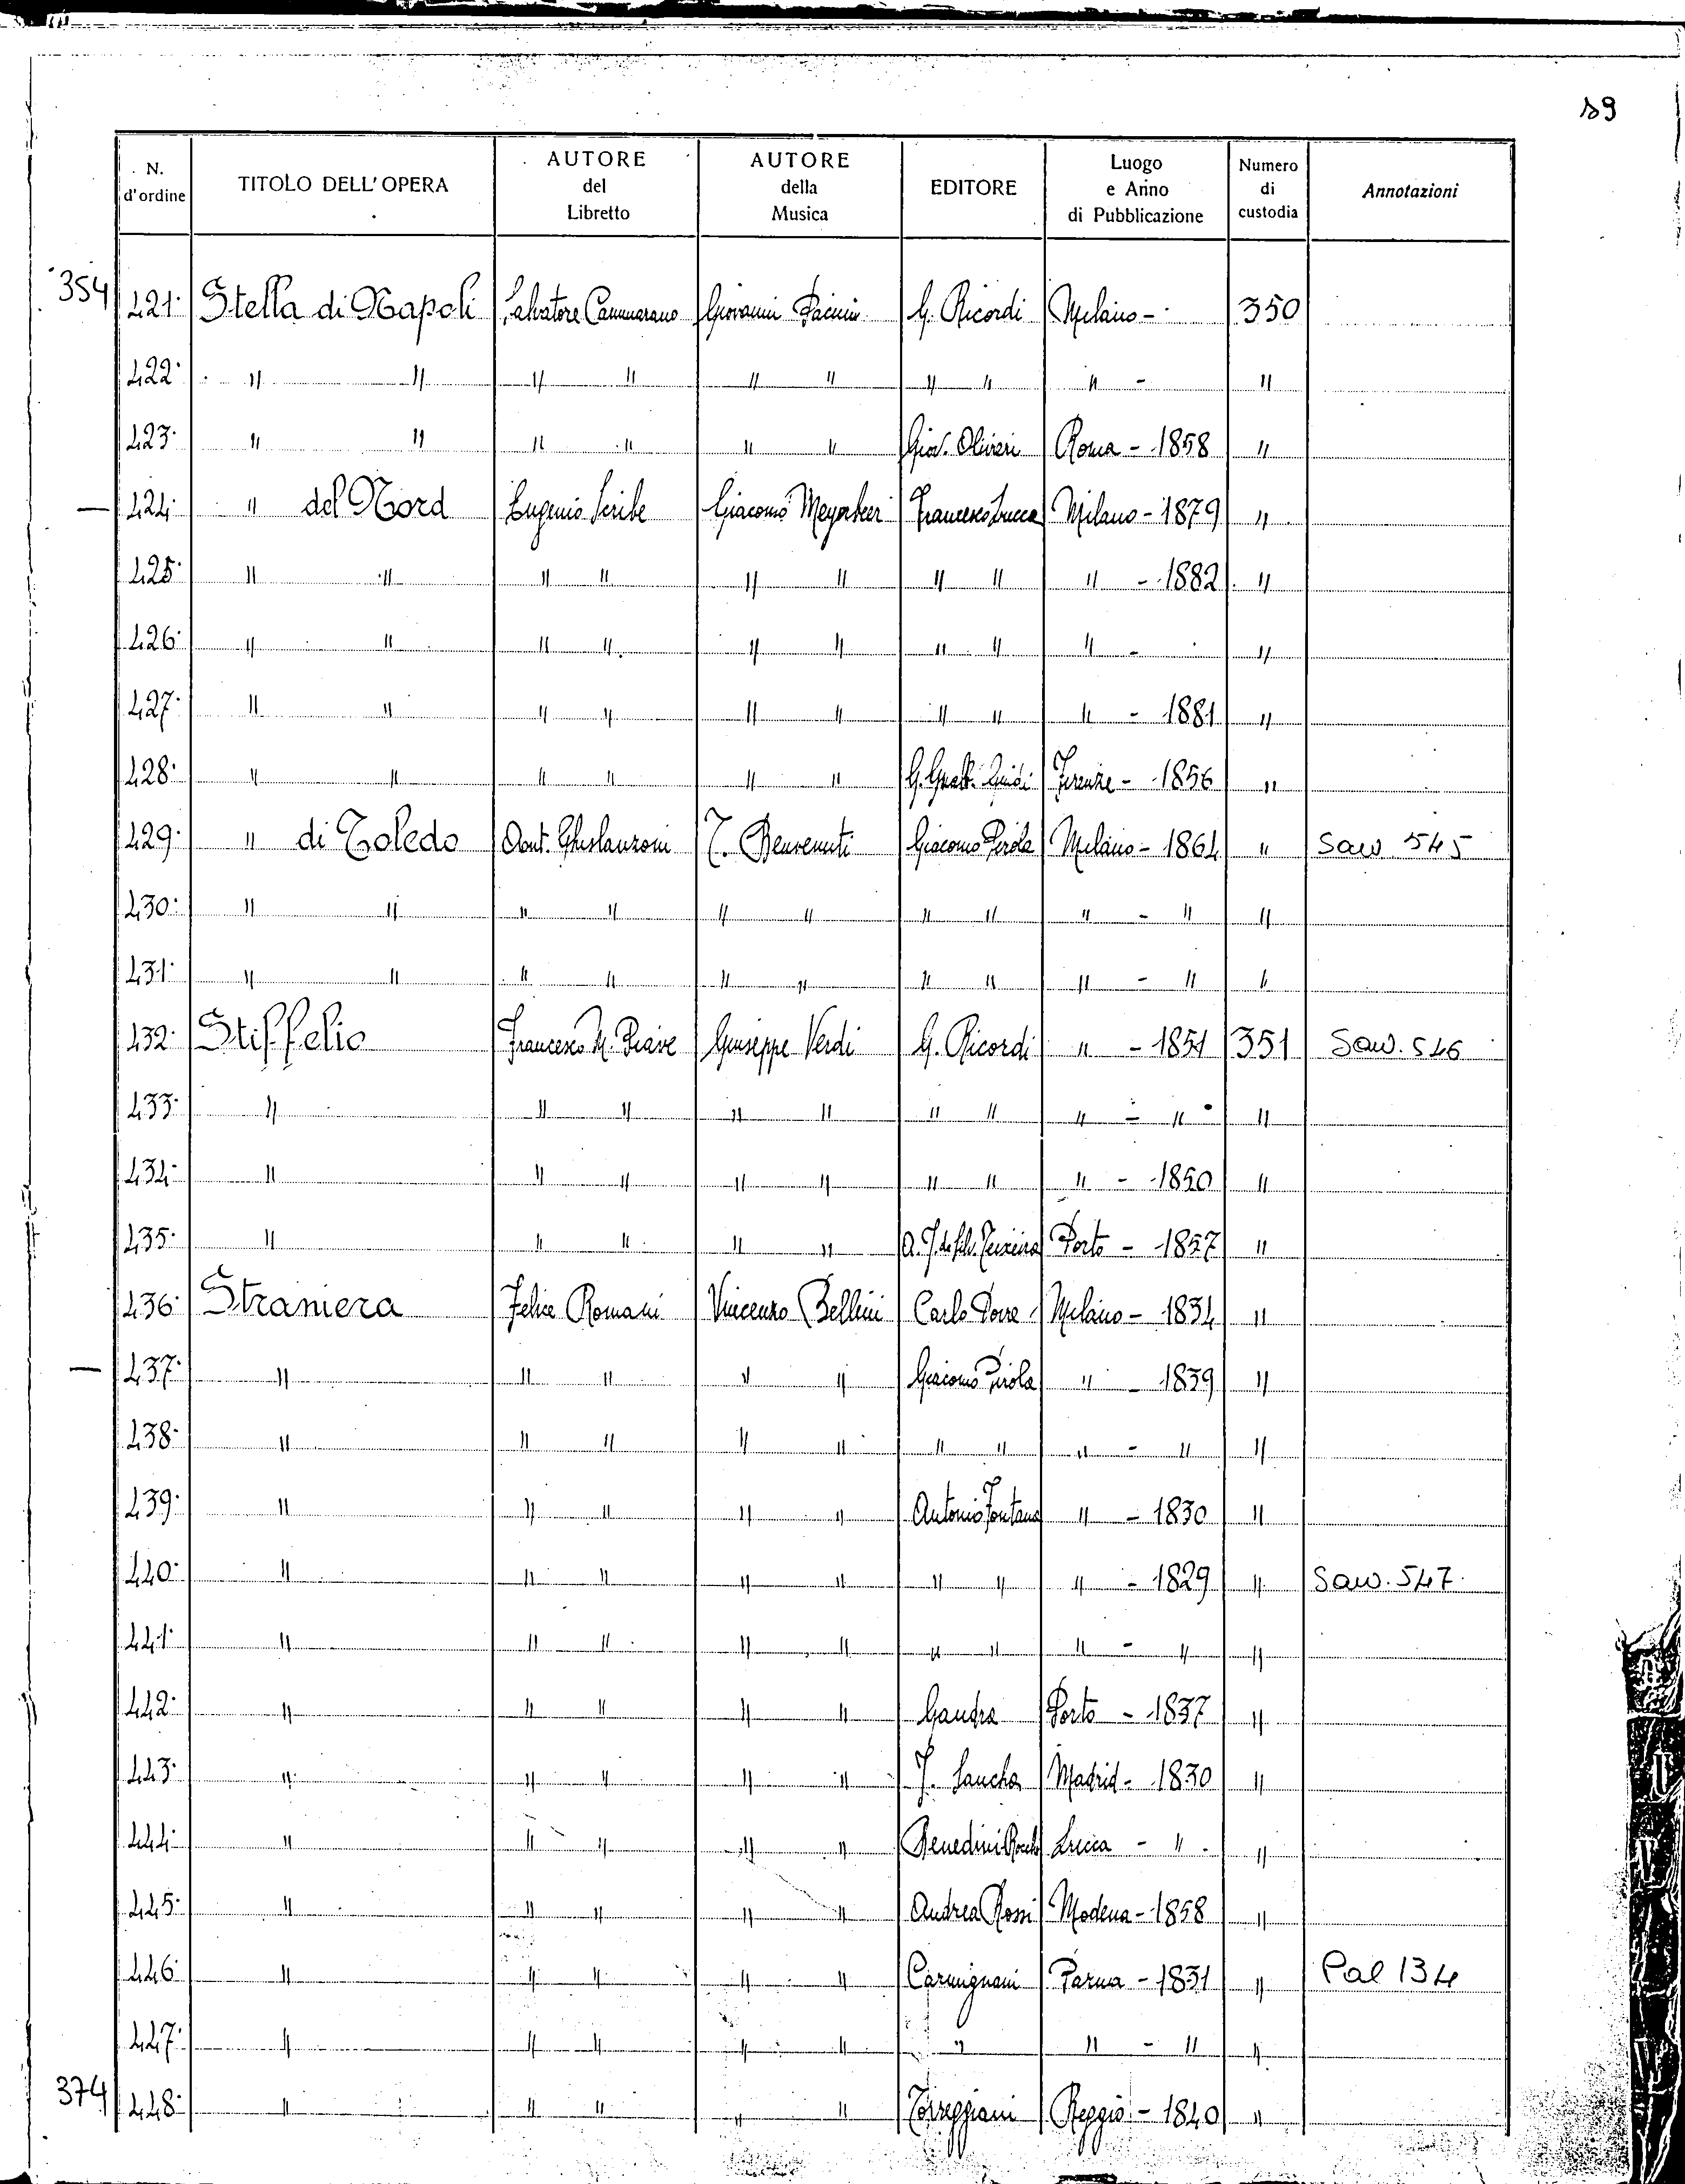 89
N. d'ordine | TITOLO DELL'OPERA | AUTORE del Libretto | AUTORE della Musica | EDITORE | Luogo e Anno di Pubblicazione | Numero di custodia | Annotazioni
354 421 Stella di Napoli | Salvatore Cammarano | Giovanni Pacini | G. Ricordi | Milano - | 350
422 " " | " " | " " | " " | " - | "
423 " " | " " | " " | Giov. Olivieri | Roma - 1858 | "
— 424 " del Nord | Eugenio Scribe | Giacomo Meyerbeer | Francesco Lucca | Milano - 1879 | "
425 " " | " " | " " | " " | " - 1882 | "
426 " " | " " | " " | " " | " - | "
427 " " | " " | " " | " " | " - 1881 | "
428 " " | " " | " " | G. Guidi | Firenze - 1856 | "
429 " di Toledo | Ant. Ghislanzoni | T. Benvenuti | Giacomo Pirola | Milano - 1864 | " | Saw 545
430 " " | " " | " " | " " | " - " | "
431 " " | " " | " " | " " | " - " | "
432 Stiffelio | Francesco M. Piave | Giuseppe Verdi | G. Ricordi | " - 1851 | 351 | Saw. 546
433 " | " " | " " | " " | " - " | "
434 " | " " | " " | " " | " - 1850 | "
435 " | " " | " " | Teixeira | Porto - 1857 | "
436 Straniera | Felice Romani | Vincenzo Bellini | Carlo Dova | Milano - 1834 | "
— 437 " | " " | " " | Giacomo Pirola | " - 1839 | "
438 " | " " | " " | " " | " - " | "
439 " | " " | " " | Antonio Fontana | " - 1830 | "
440 " | " " | " " | " " | " - 1829 | " | Saw. 547
441 " | " " | " " | " " | " - " | "
442 " | " " | " " | Gandra | Porto - 1837 | "
443 " | " " | " " | J. Sancha | Madrid - 1830 | "
444 " | " " | " " | Benedini | Lucca - " | "
445 " | " " | " " | Andrea Rossi | Modena - 1858 | "
446 " | " " | " " | Carmignani | Parma - 1831 | " | Pal 134
447 " | " " | " " | " | " - " | "
374 448 " | " " | " " | Torreggiani | Reggio - 1840 | "